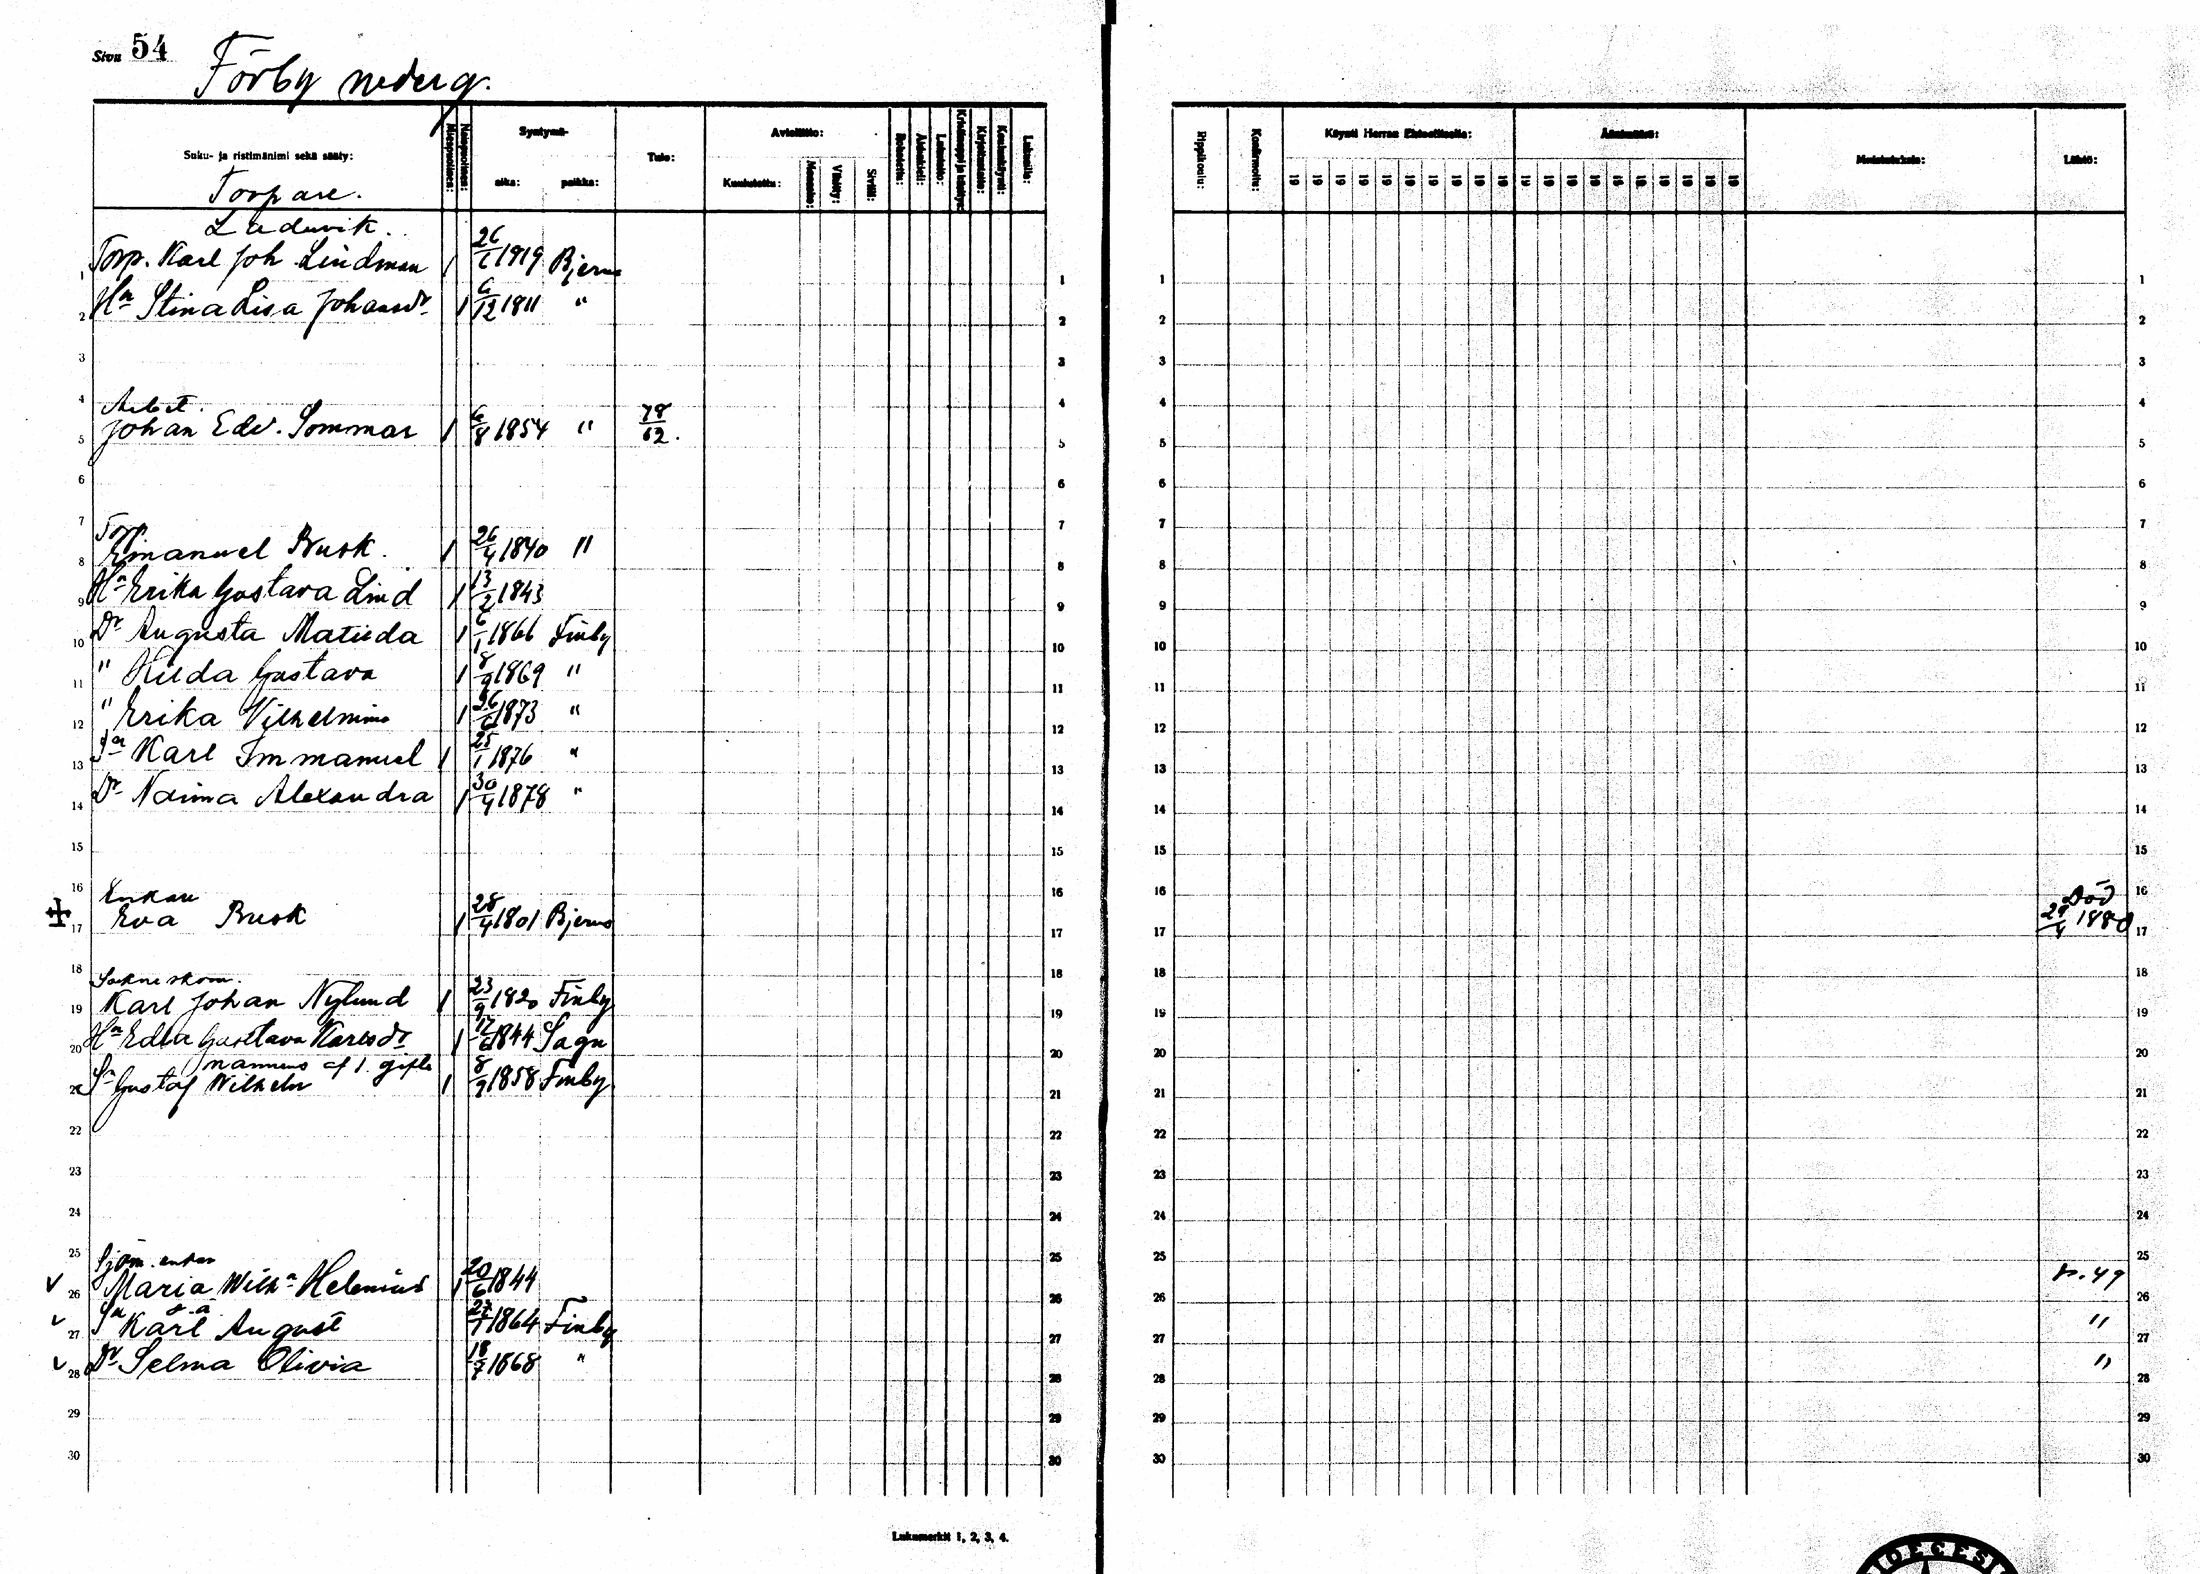 Sivu 54
Förby nederg.
Suku- ja ristimänimi sekä sääty:
Torpare.
Miespuolinen:
Naispuolinen:
Syntymä-
aika:
paikka:
Tulo:
Avioliitto:
Kuulutettu:
Vihitty:
Siviili:
Rokotettu:
Lukutaito:
Rippikoulu:
Käynti Herran Ehtoollisella:
19 19 19 19 19 19 19 19 19 19
19 19 19 19 19 19 19 19 19 19
Muistutuksia:
Lähtö:
Laduvik.
1 Torp. Karl Joh Lindman 1 1919 Bjerno 1 1
2 Hn Stina Lisa Johansdr 1 6/12 1811 " 2 2
3 3 3
4 Arbet. 4 4
5 Johan Edv. Sommar 1 6/8 1854 " 78/62. 5 5
6 6 6
7 Torp 7 7
8 Emanuel Busk. 1 26/4 1840 " 8 8
9 Hn Erika Gustava Lind 1 13/2 1843 9 9
10 Dr Augusta Matilda 1 6/1 1866 Finby 10 10
11 " Hilda Gustava 1 8/9 1869 " 11 11
12 " Erika Vilhelmina 1 26/6 1873 " 12 12
13 Sn Karl Immanuel 1 25/1 1876 " 13 13
14 Dr Naima Alexandra 1 30/4 1878 " 14 14
15 15 15
16 Enkan 16 16 Död
17 Eva Busk 1 28/4 1801 Bjerno 17 17 29/4 1880
18 Sockneskom. 18 18
19 Karl Johan Nylund 1 23/9 1820 Finby 19 19
20 Hn Edla Gustava Karlsdr 1 17/6 1844 Sagu 20 20
mannens af 1. gifte
21 Sn Gustaf Wilhelm 1 8/9 1858 Finby 21 21
22 22 22
23 23 23
24 24 24
25 Sjöm. enkan 25 25
26 Maria Wilhna Helenius 1 20/6 1844 26 26 s. 49
27 Sn Karl August 27/7 1864 Finby 27 27 "
28 Dr Selma Olivia 18/7 1868 " 28 28 "
29 29 29
30 30 30
Lukumerkit 1, 2, 3, 4.